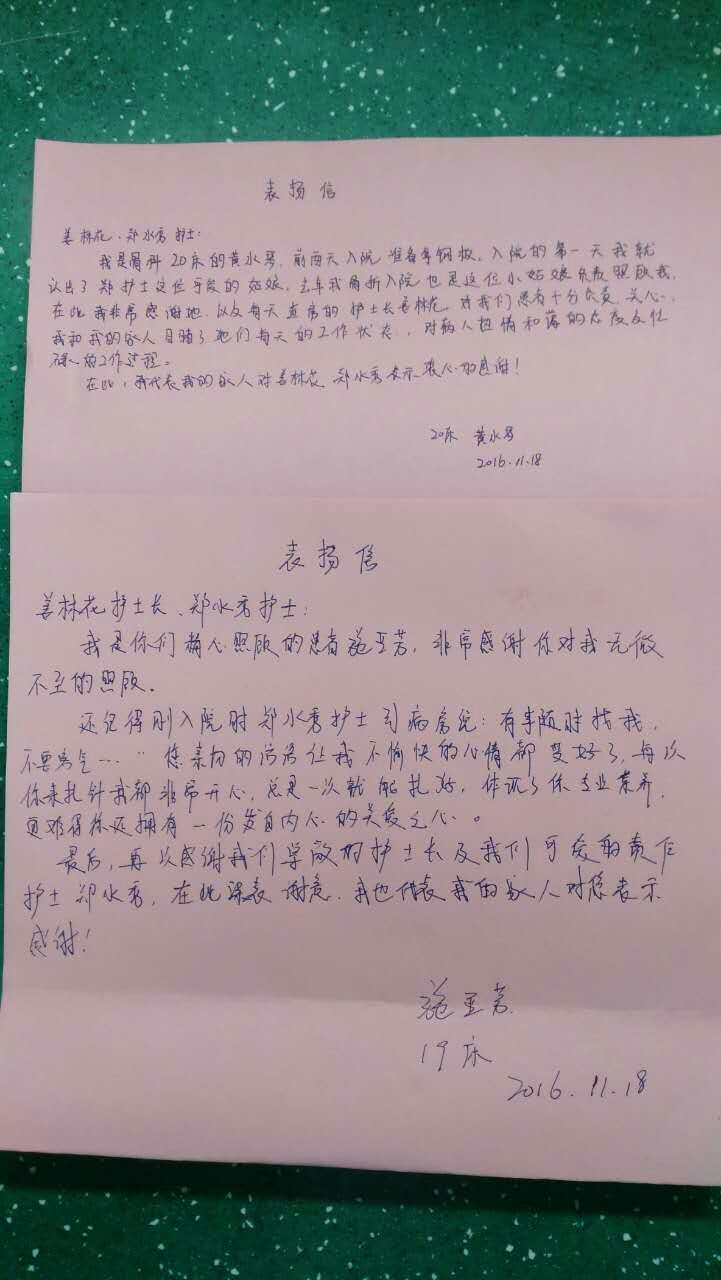 表扬信
姜林花、郑水秀护士:
我是骨科20床的黄水琴,前两天入院准备拿钢板,入院的第一天我就
认出了郑护士这位可爱的姑娘,去年我骨折入院也是这位小姑娘负责照顾我,
在此我非常感谢她,以及每天查房的护士长姜林花,对我们患者十分负责、关心,
我和我的家人目睹了她们每天的工作状态,对病人热情和蔼的态度及忙
碌的工作过程。
在此,我代表我的家人对姜林花、郑水秀表示衷心的感谢!
20床 黄水琴
2016.11.18
表扬信
姜林花护士长、郑水秀护士:
我是你们精心照顾的患者施亚芳,非常感谢你对我无微
不至的照顾.
还记得刚入院时郑水秀护士到病房说:有事随时找我,
不要客气…"您亲切的话语让我不愉快的心情都变好了,每次
你来扎针我都非常开心,总是一次就能扎好,体现了你专业素养,
更难得你还拥有一份发自内心的关爱之心。
最后,再次感谢我们尊敬的护士长及我们可爱的责任
护士郑水秀,在此深表谢意.我也代表我的家人对您表示
感谢!
施亚芳
19床
2016.11.18